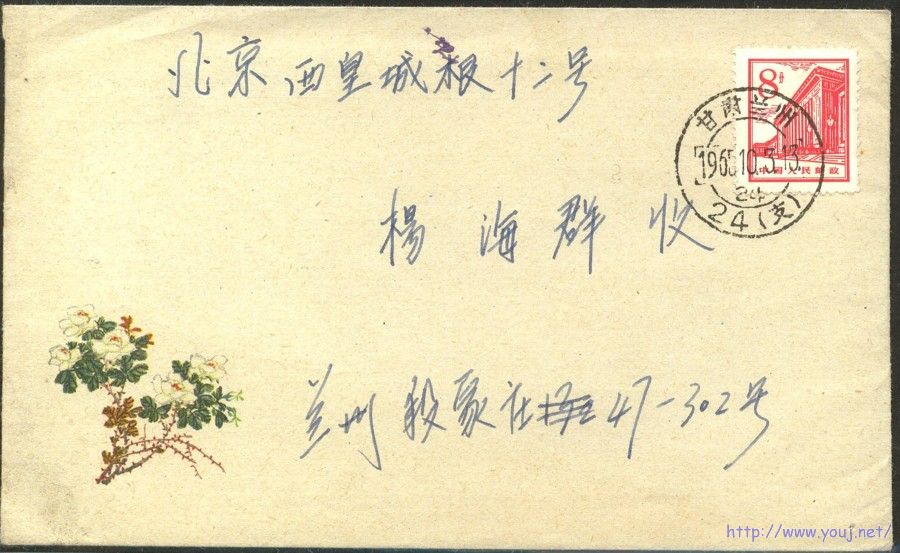 北京西皇城根十二号
8分
中国人民邮政
甘肃兰州
1965.10.5.13
24
24(支)
楊海群 收
兰州 段家庄 47-302号
http://www.youj.net/